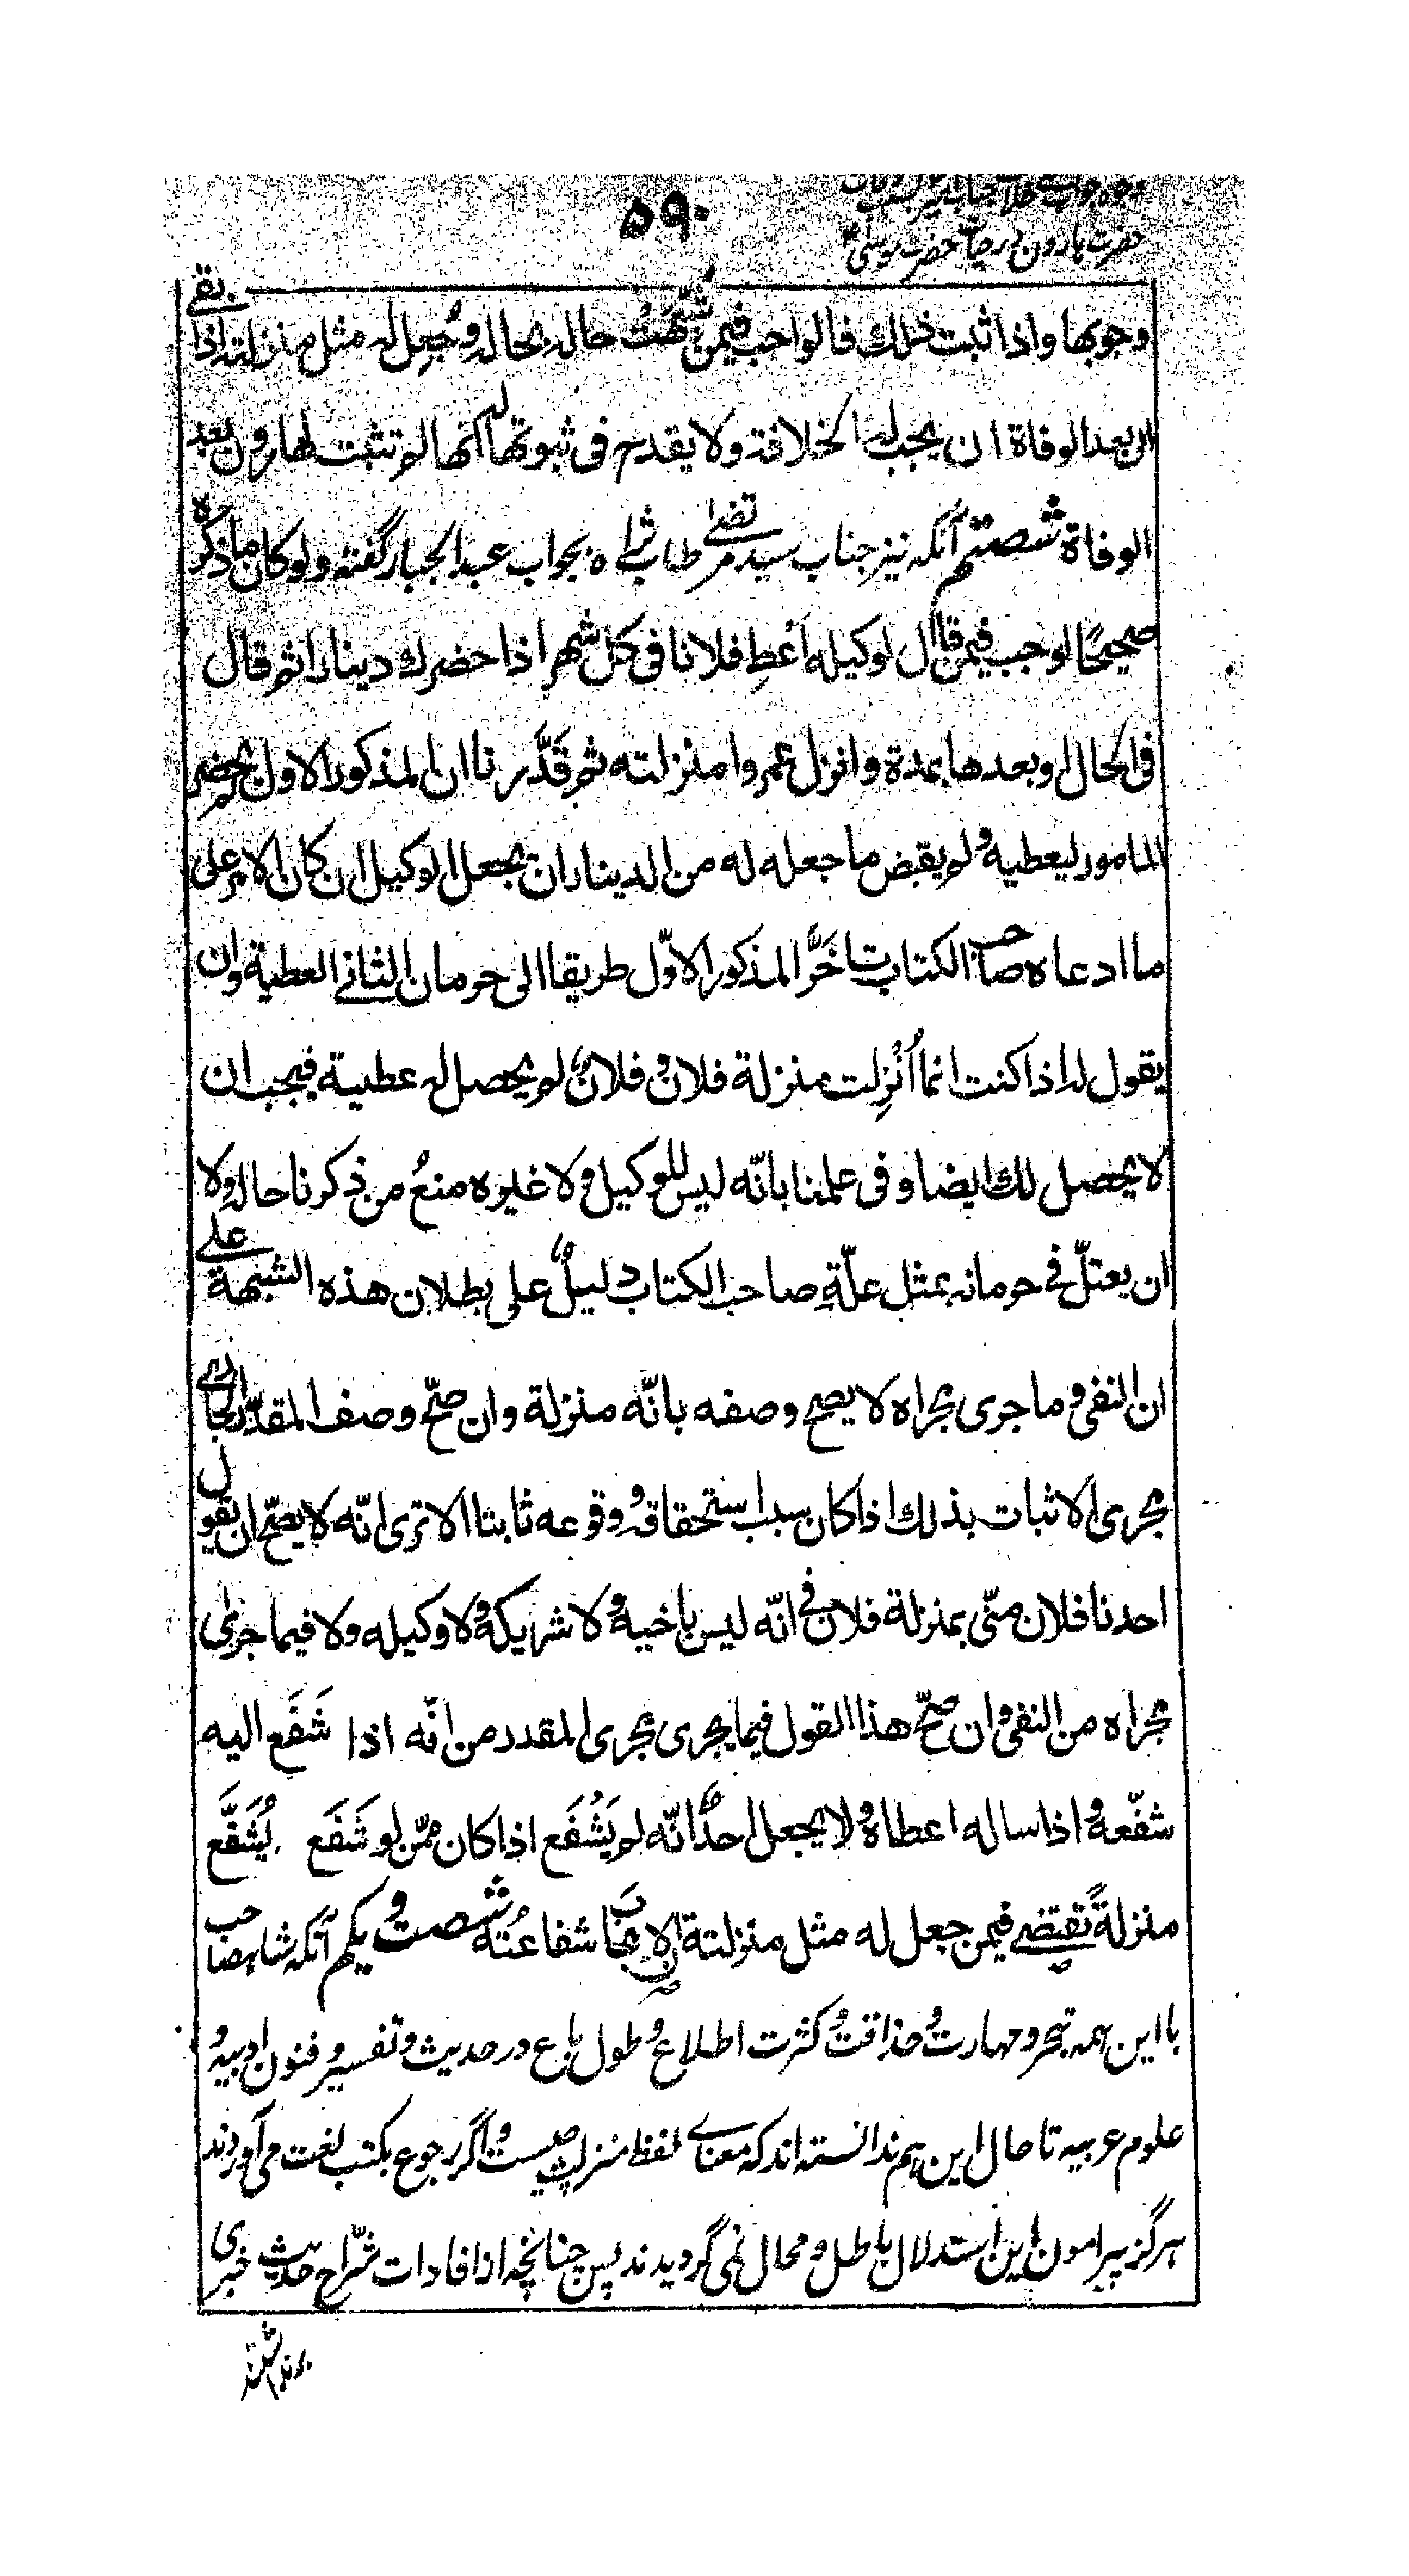 ۵۹۰
حضرت هارون در حیات حضرت موسی
وجوبها و اذا ثبت ذلك فالواجب فیمن شُبِّهَت حاله بحاله وجُعِل له مثل منزلته اذا بقی
الی بعد الوفاة ان یجب له الخلافة ولا یقدح فی ثبوتها له انها لم تثبت لهارون بعد
الوفاة شصتم آنکه نیز جناب سید مرتضی طاب ثراه بجواب عبد الجبار گفته ولو كان ما ذكره
صحیحًا لوجب فیمن قال لوكیله اَعْطِ فلانا فی كل شهر اذا حضرك دینارا ثم قال
فی الحال او بعدها بمدة وانزل عمروا منزلته ثم قَدَّرنا ان المذكور الاول لم یحضر
المامور لیعطیه ولم یقبض ما جعله له من الدینار ان یجعل الوكیل ان كان الامر علی
ما ادعاه صاحب الكتاب تاخَّر المذكور الاوّل طریقا الی حرمان الثانی العطیة وان
یقول له اذا كنت انما اُنْزِلت منزلة فلان و فلانٌ لم یحصل له عطیة فیجب ان
لا یحصل لك ایضا وفی علمنا بانّه لیس للوكیل ولا غیره منعُ من ذكرنا حاله ولا
ان یعتلّ فی حرمانه بمثل علّةِ صاحب الكتاب دلیلٌ علی بطلان هذه الشبهة علی
ان النفی وما جری مجراه لا یصح وصفه بانّه منزلة وان صحّ وصف المقدّر الجاری
مجری الاثبات بذلك اذا كان سبب استحقاقه ووقوعه ثابتا الا تری انّه لا یصحّ ان یقول
احدنا فلان منّی بمنزلة فلان فی انّه لیس باخیه ولا شریكه ولا وكیله ولا فیما جری
مجراه من النفی وان صحّ هذا القول فیما یجری مجری المقدر من انّه اذا شَفَع الیه
شفّعه واذا ساله اعطاه ولا یجعل احدٌ انّه لم یَشْفَع اذا كان ممّن لو شَفَع لَیُشَفَّع
منزلةً تقتضی فیمن جعل له مثل منزلته الا یجاب شفاعتُه شصت و یکم آنکه شاهصاحب
با این همه تبحر و مهارت و حذاقت و کثرت اطلاع و طول باع در حدیث و تفسیر و فنون ادبیه و
علوم عربیه تا حال این هم ندانسته اند که معنای لفظ منزلت چیست و اگر رجوع بکتب لغت می آوردند
هرگز پیرامون این استدلال باطل و محال نمی گردیدند پس چنانچه از افادات شرّاح حدیث خبری